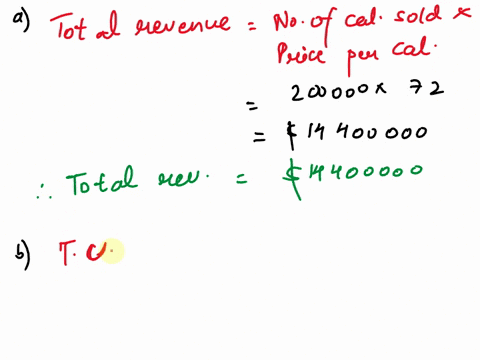 a) Total revenue = No. of cal. sold ×
Price per cal.
= 200000 × 72
= $ 14 400000
∴ Total rev. = $ 14400000
b) T.